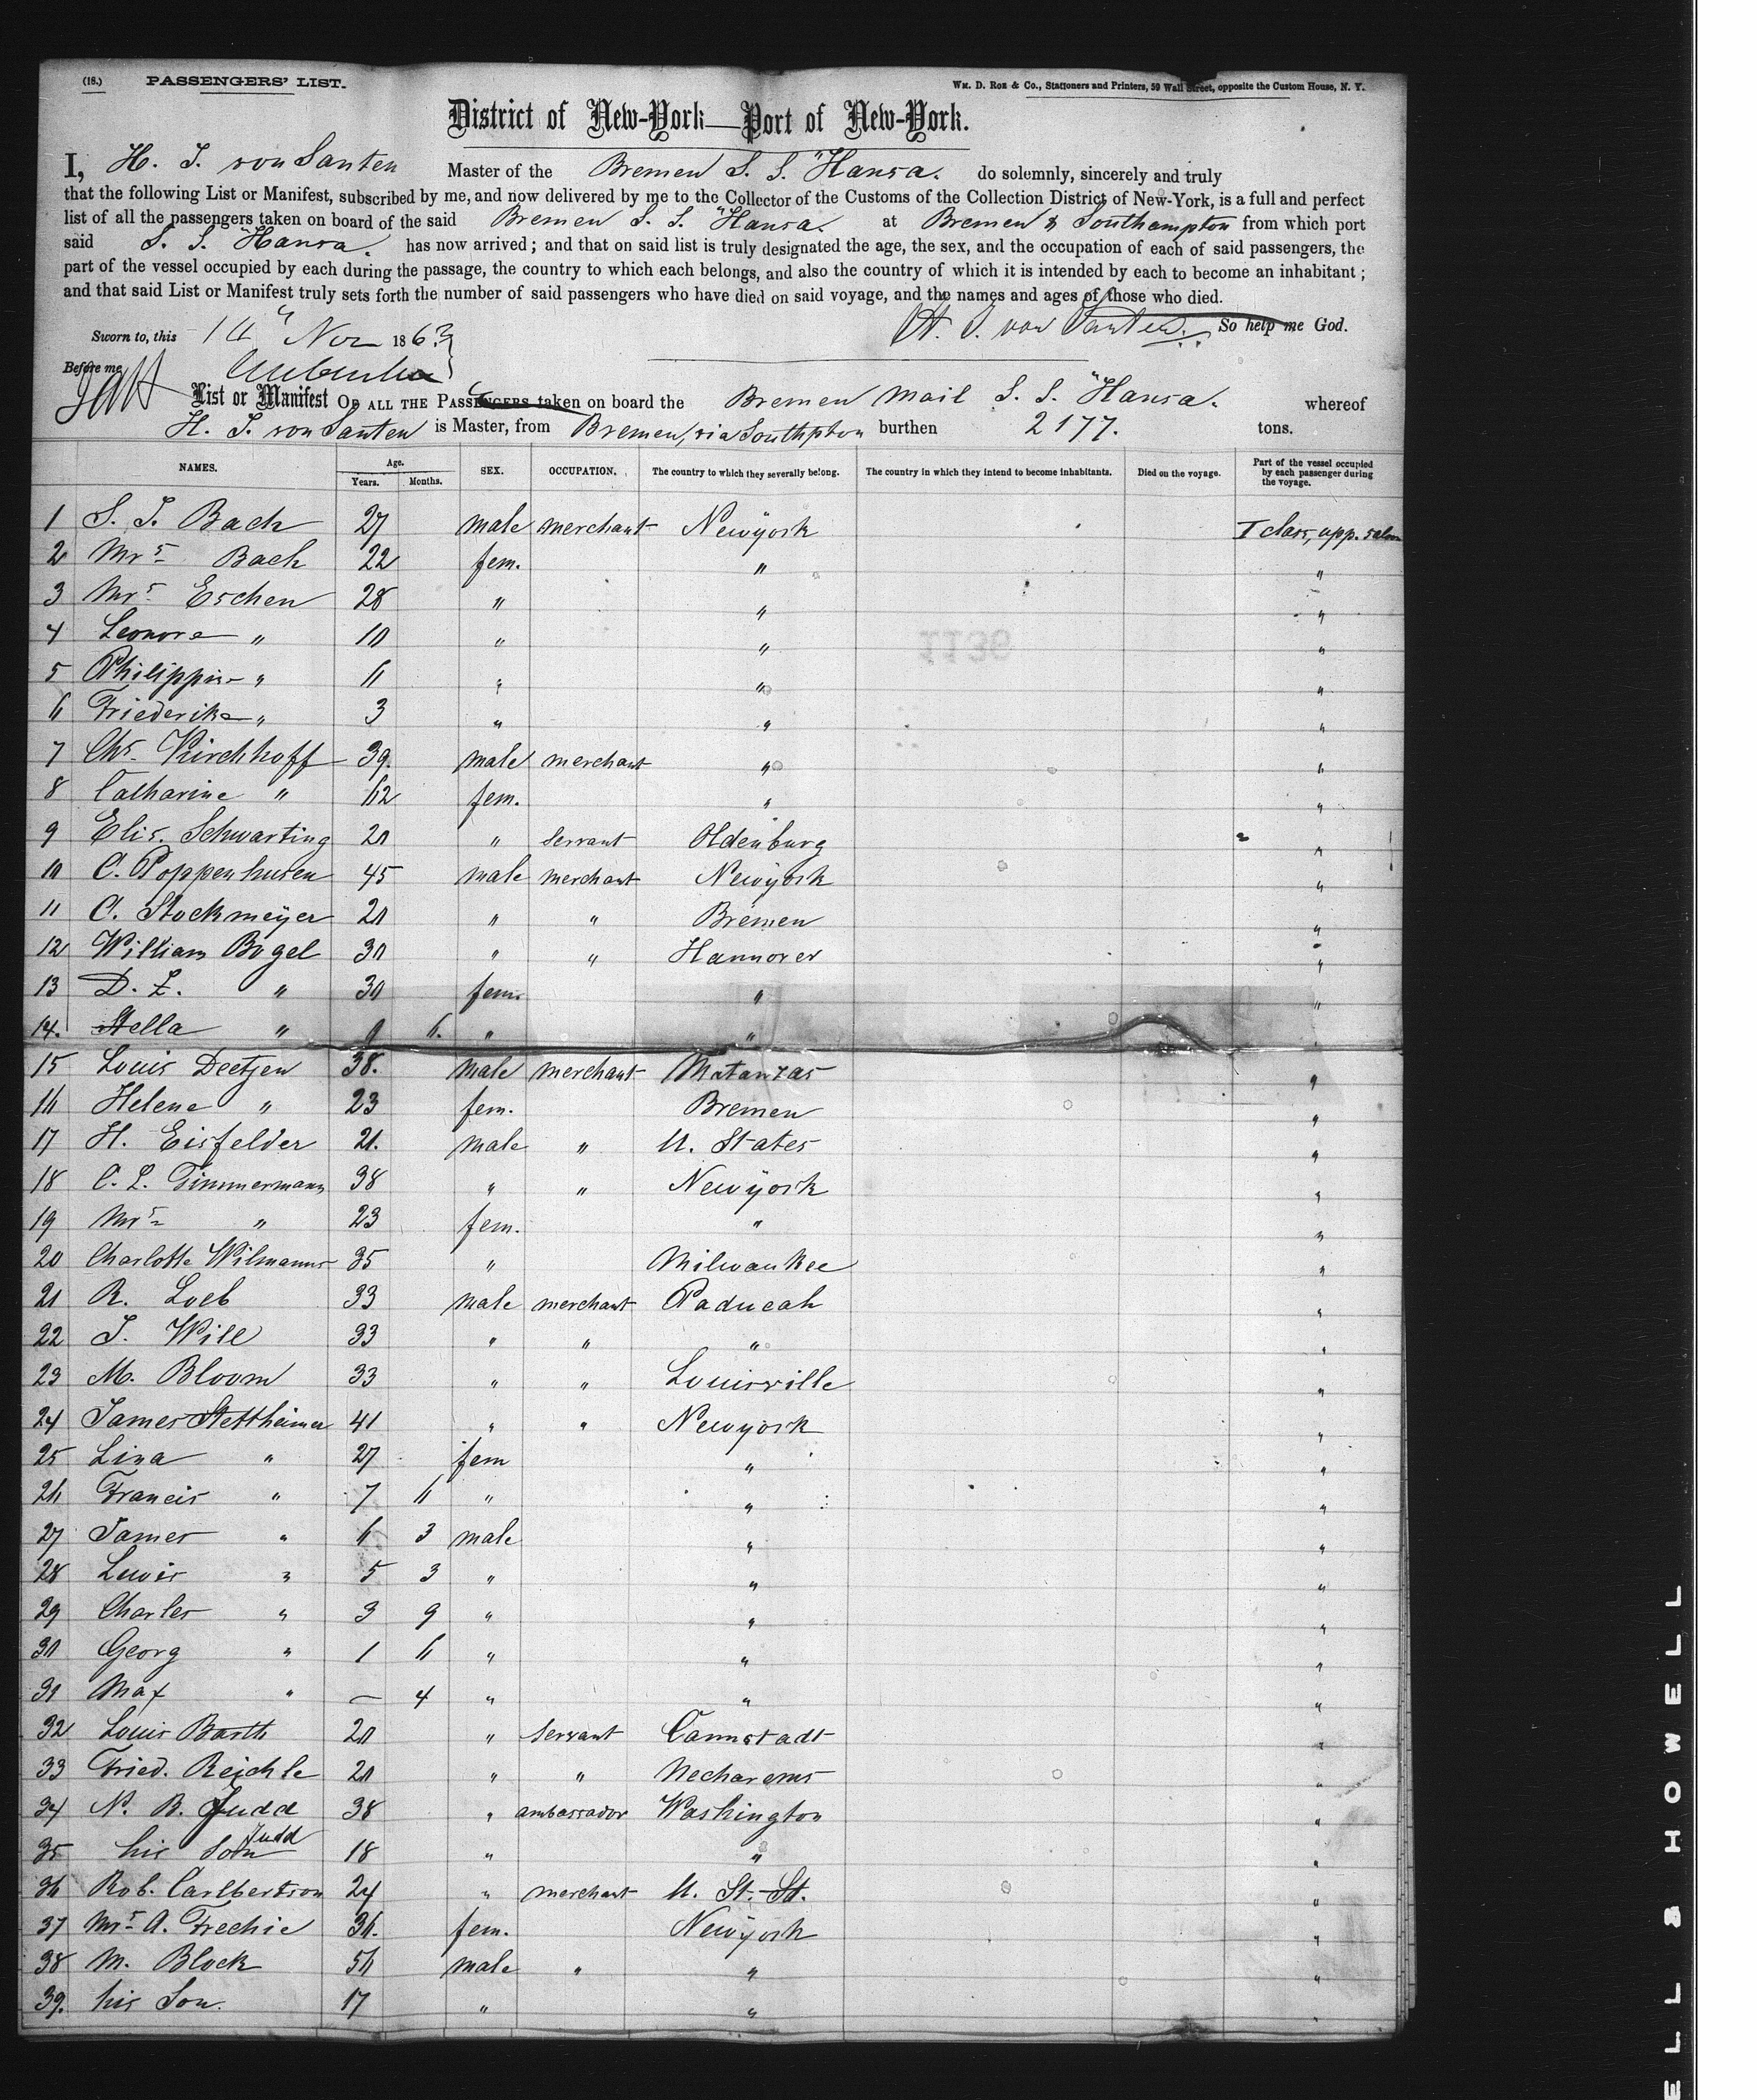 (18.) PASSENGERS' LIST. Wm. D. Roe & Co., Stationers and Printers, 59 Wall Street, opposite the Custom House, N. Y.
District of New-York—Port of New-York.
I, H. J. von Santen Master of the Bremen S. S. "Hansa. do solemnly, sincerely and truly
that the following List or Manifest, subscribed by me, and now delivered by me to the Collector of the Customs of the Collection District of New-York, is a full and perfect
list of all the passengers taken on board of the said Bremen S. S. "Hansa. at Bremen & Southampton from which port
said S. S. "Hansa. has now arrived; and that on said list is truly designated the age, the sex, and the occupation of each of said passengers, the
part of the vessel occupied by each during the passage, the country to which each belongs, and also the country of which it is intended by each to become an inhabitant;
and that said List or Manifest truly sets forth the number of said passengers who have died on said voyage, and the names and ages of those who died.
Sworn to, this Nov 1863 H. J. von Santen. So help me God.
Before me
List or Manifest OF ALL THE PASSENGERS taken on board the Bremen Mail S. S. "Hansa. whereof
H. J. von Santen is Master, from Bremen, via Southpton burthen 2177. tons.
NAMES. Age. Years. Months. SEX. OCCUPATION. The country to which they severally belong. The country in which they intend to become inhabitants. Died on the voyage. Part of the vessel occupied by each passenger during the voyage.
1 S. J. Bach 27 male merchant Newyork I class, upp. saloon
2 Mrs Bach 22 fem. " "
3 Mrs Eschen 28 " " "
4 Leonore " 10 " " "
5 Philippine " 6 " " "
6 Friederike " 3 " " "
7 Chs Kirchhoff 39. male merchant " "
8 Catharine " 62 fem. " "
9 Elis. Schwarting 20 " servant Oldenburg "
10 C. Poppenhusen 45 male merchant Newyork "
11 C. Stockmeyer 20 " " Bremen "
12 William Bogel 30 " " Hannover "
13 D. L. " 30 fem. " "
14. Stella " 6. " "
15 Louis Deetjen 38. male merchant Matanzas "
16 Helene " 23 fem. Bremen "
17 H. Eisfelder 21. male " U. States "
18 C. L. Timmermann 38 " " Newyork "
19 Mrs " 23 fem. " "
20 Charlotte Wilmanns 35 " Milwaukee "
21 R. Loeb 33 male merchant Paducah "
22 J. Will 33 " " " "
23 M. Bloom 33 " " Louisville "
24 James Stettheimer 41 " " Newyork "
25 Lina " 27 fem " "
26 Francis " 7 6 " " "
27 James " 6 3 male " "
28 Lewis " 5 3 " " "
29 Charles " 3 9 " " "
30 Georg " 1 6 " " "
31 Max " — 4 " " "
32 Louis Barth 20 " servant Cannstadt "
33 Fried. Reichle 20 " " "
34 N. B. Judd 38 " ambassador Washington "
35 his Son Judd 18 " " "
36 Rob. Carlbertson 24 " merchant U. St. St. "
37 Mrs A. Frechie 36. fem. Newyork "
38 M. Block 56 male " " "
39. his Son. 17 " "
1136
ELL & HOWELL